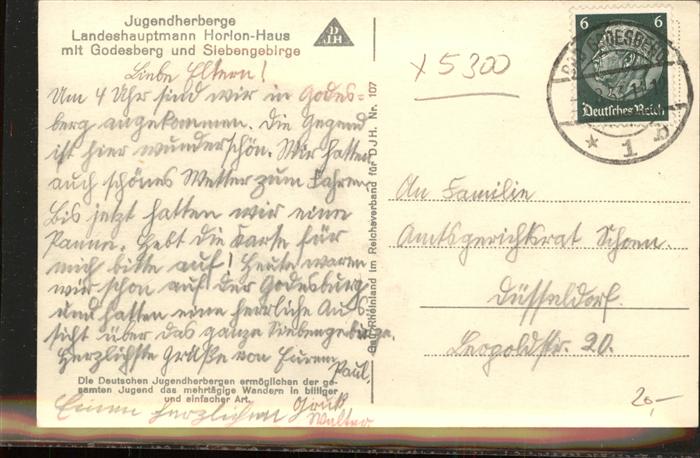 Jugendherberge
Landeshauptmann Horion-Haus
mit Godesberg und Siebengebirge
DJH
Liebe Eltern!
Um 4 Uhr sind wir in Godes-
berg angekommen. Die Gegend
ist hier wunderschön. Wir hatten
auch schönes Wetter zum Fahren.
Bis jetzt hatten wir eine
Panne. Hebt die Karte für
mich bitte auf! Heute waren
wir schon auf der Godesburg
und hatten eine herrliche Aus-
sicht über das ganze Siebengebirge.
Herzlichste Grüße von Eurem
Paul.
Die Deutschen Jugendherbergen ermöglichen der ge-
samten Jugend das mehrtägige Wandern in billiger
und einfacher Art.
Einen herzlichen Gruß
Walter
Gau Rheinland im Reichsverband für DJH. Nr. 107
x 5300
6 6
Deutsches Reich
BAD GODESBERG
* 1 b
An Familie
Amtsgerichtsrat Schoen.
Düsseldorf.
Leopoldstr. 20.
20,-